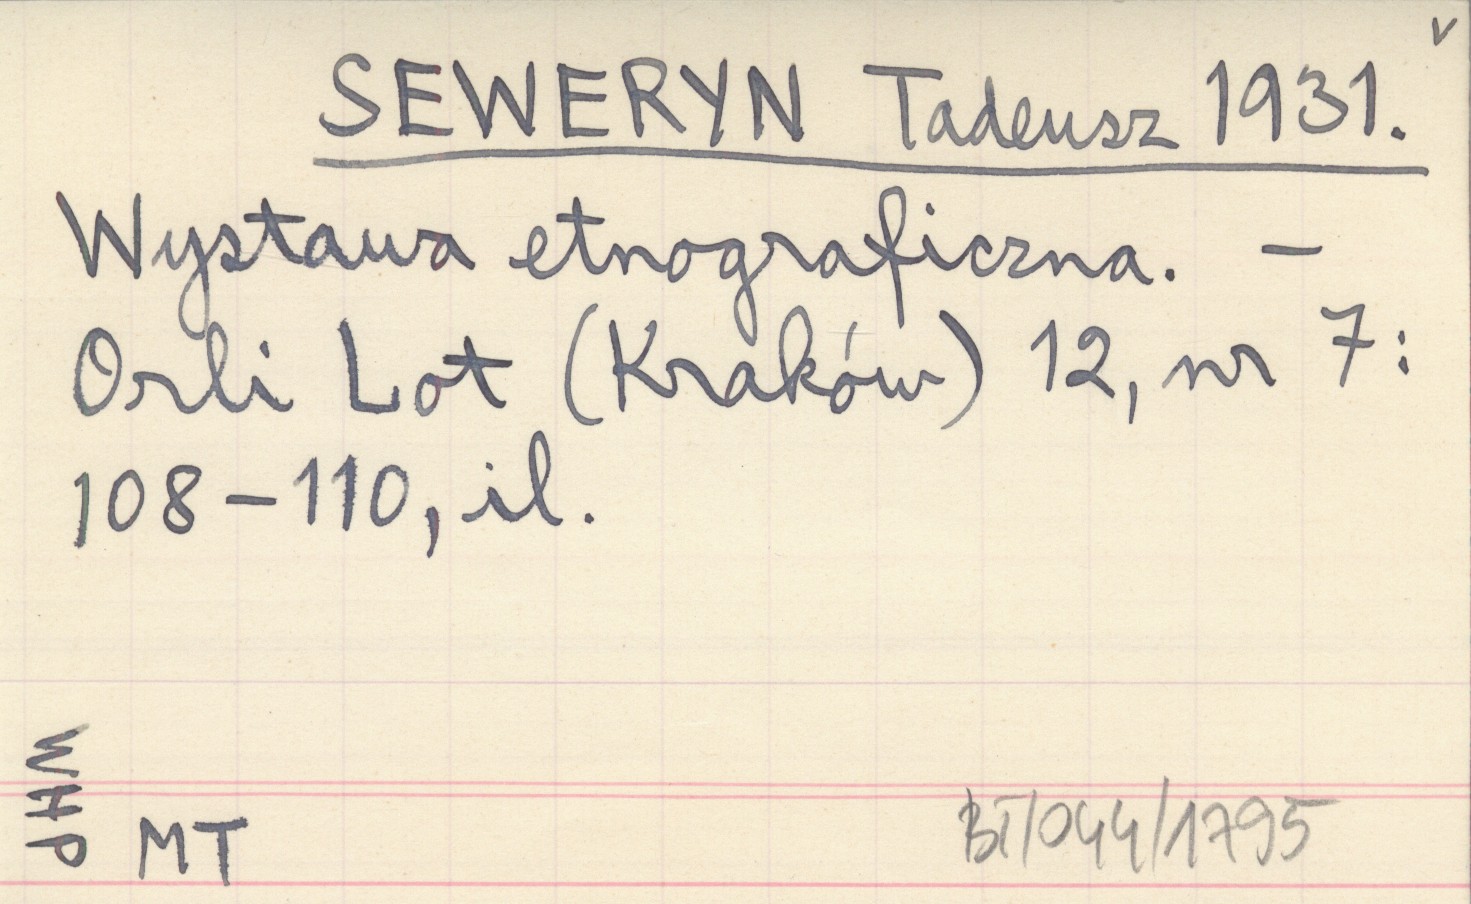 v
SEWERYN Tadeusz 1931.
Wystawa etnograficzna. –
Orli Lot (Kraków) 12, nr 7:
108–110, il.
WHP
MT
BI/044/1795